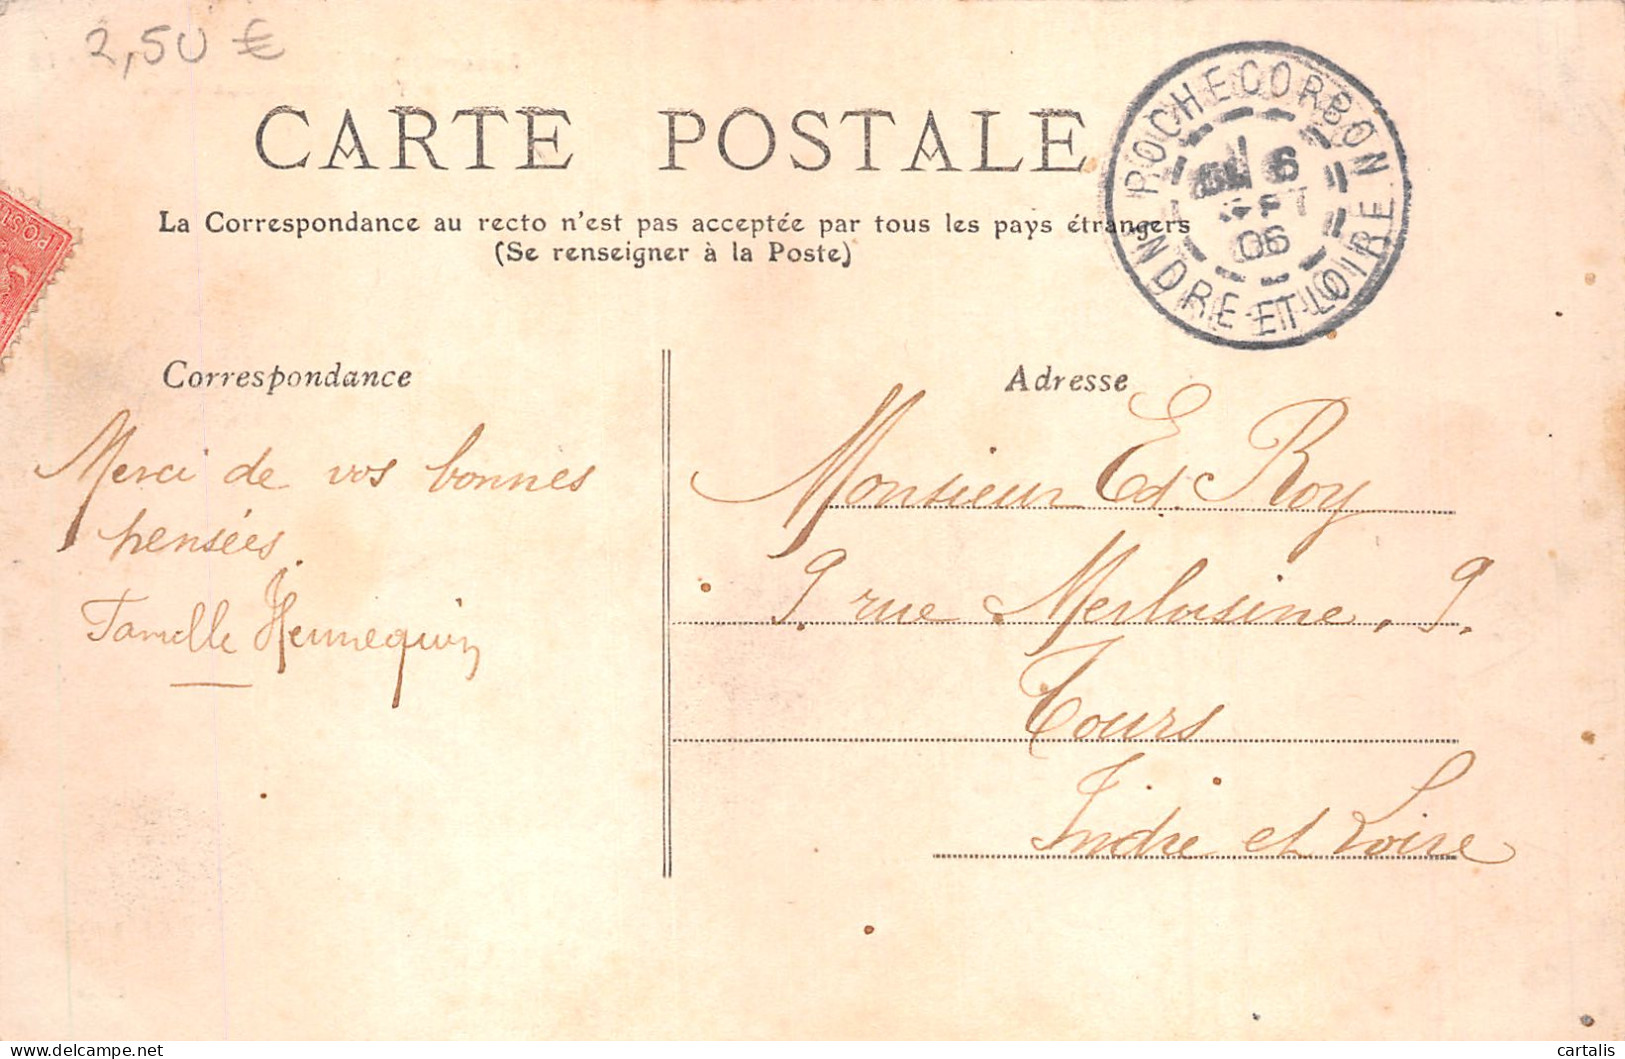 2,50 €
CARTE POSTALE
La Correspondance au recto n'est pas acceptée par tous les pays étrangers
(Se renseigner à la Poste)
ROCHECORBON
6
06
INDRE-ET-LOIRE
Correspondance
Merci de vos bonnes
pensées.
Famille Hennequin
Adresse
Monsieur Ed. Roy
9 rue Merlusine, 9.
Tours
Indre et Loire
cartalis